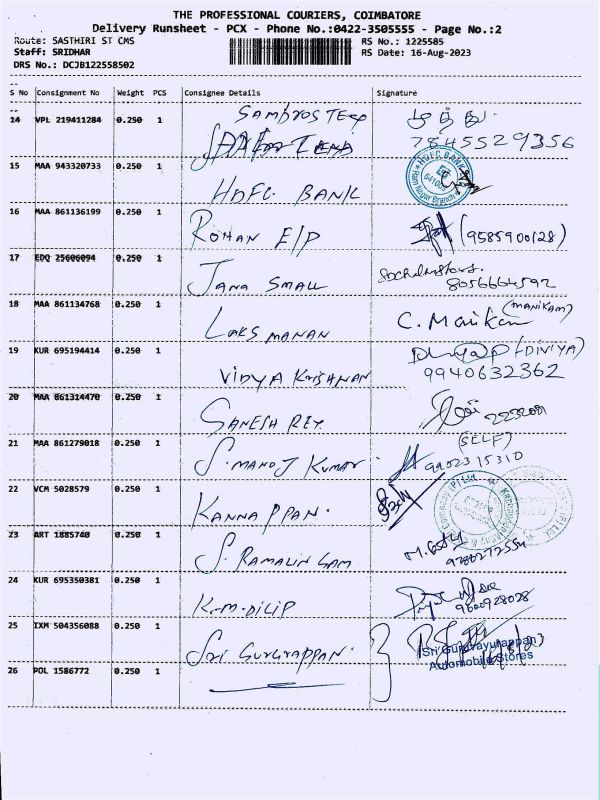 THE PROFESSIONAL COURIERS, COIMBATORE
Delivery Runsheet - PCX - Phone No.:0422-3505555 - Page No.:2
Route: SASTHIRI ST CMS RS No.: 1225585
Staff: SRIDHAR RS Date: 16-Aug-2023
DRS No.: DCJB122558502
S No Consignment No Weight PCS Consignee Details Signature
14 VPL 219411284 0.250 1 SAMBROS TEX முத்து
7845529356
15 MAA 943320733 0.250 1 HDFC BANK HDFC BANK
16 MAA 861136199 0.250 1 ROHAN E/P (9585900128)
17 EDQ 25606094 0.250 1 JANA SMALL
8056664592
18 MAA 861134768 0.250 1 LAKSMANAN C. Manikam (MANIKAM)
19 KUR 695194414 0.250 1 VIDYA KRISHNAN Divya (DIVIYA)
9940632362
20 MAA 861314470 0.250 1 GANESH REY
21 MAA 861279018 0.250 1 S. MANOJ KUMAR (SELF)
9902315310
22 VCM 5028579 0.250 1 KANNAPPAN.
23 ART 1885740 0.250 1 S. RAMALINGAM
24 KUR 695350381 0.250 1 K.M. DILIP
9600928028
25 IXM 504356088 0.250 1 SRI GURURAPPAN. Sri Guruvayurappan
Automobile Stores
26 POL 1586772 0.250 1